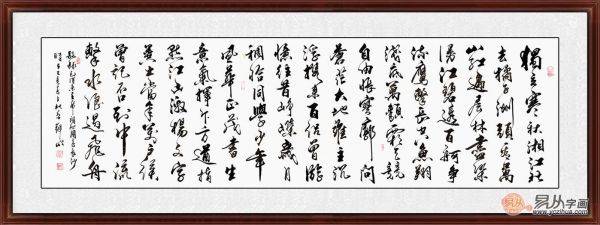 獨立寒秋湘江北
去橘子洲頭看萬
山紅遍層林盡染
漫江碧透百舸爭
流鷹擊長空魚翔
淺底萬類霜天競
自由悵寥廓問
蒼茫大地誰主沉
浮攜來百侶曾遊
憶往昔崢嶸歲月
稠恰同學少年
風華正茂書生
意氣揮斥方遒指
點江山激揚文字
糞土當年萬戶侯
曾記否到中流
擊水浪遏飛舟
易从字画
www.yczihua.com